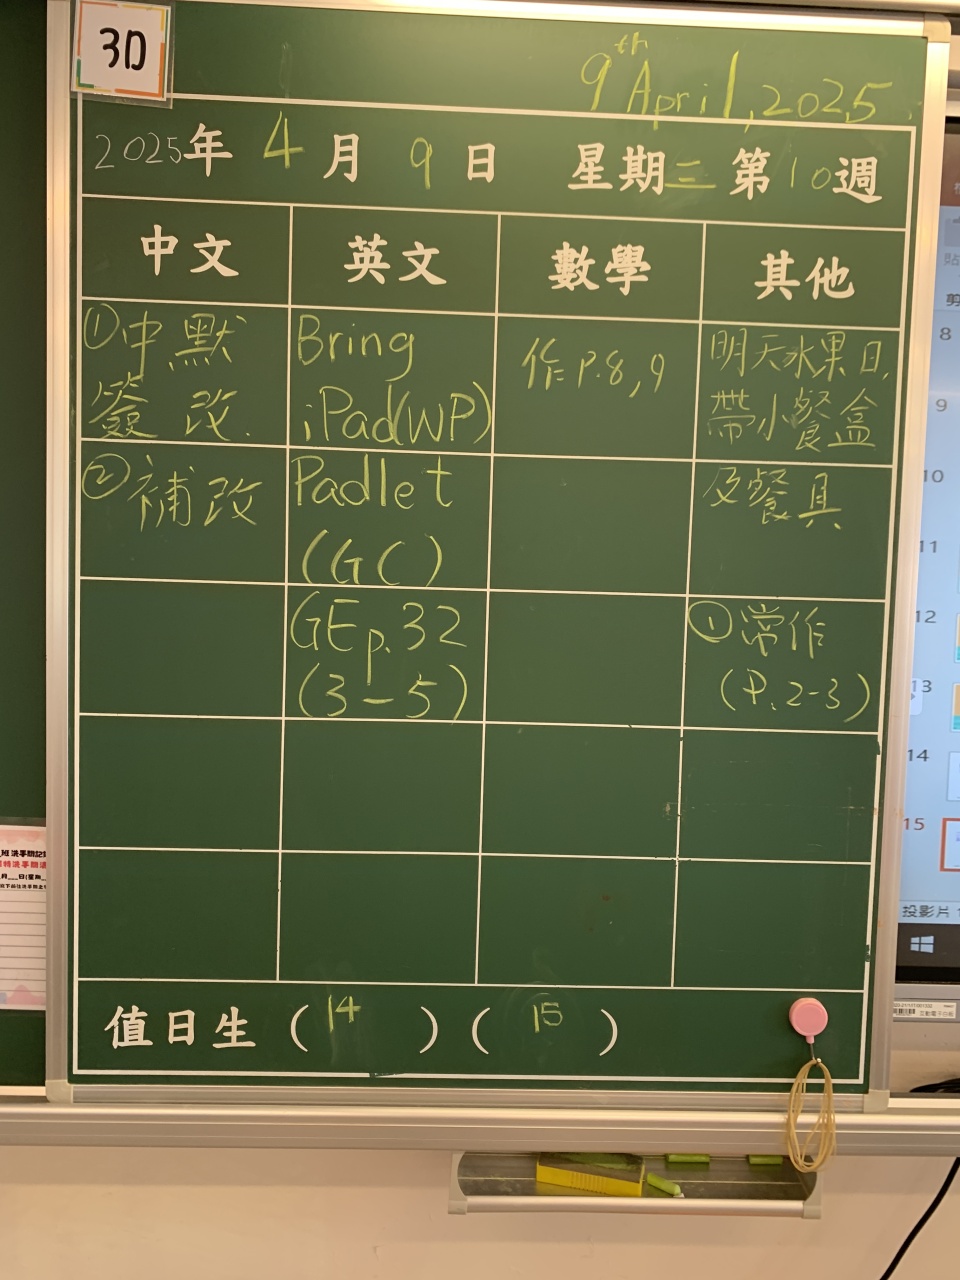 3D
9th April, 2025
2025年 4月 9日 星期三 第10週
中文 英文 數學 其他
①中默
簽改.
②補改
Bring
iPad(WP)
Padlet
(GC)
GE p.32
(3-5)
作 P.8,9
明天水果日,
帶小餐盒
及餐具
①常作
(P.2-3)
值日生 (14) (15)
8
9
10
11
12
13
14
15
投影片